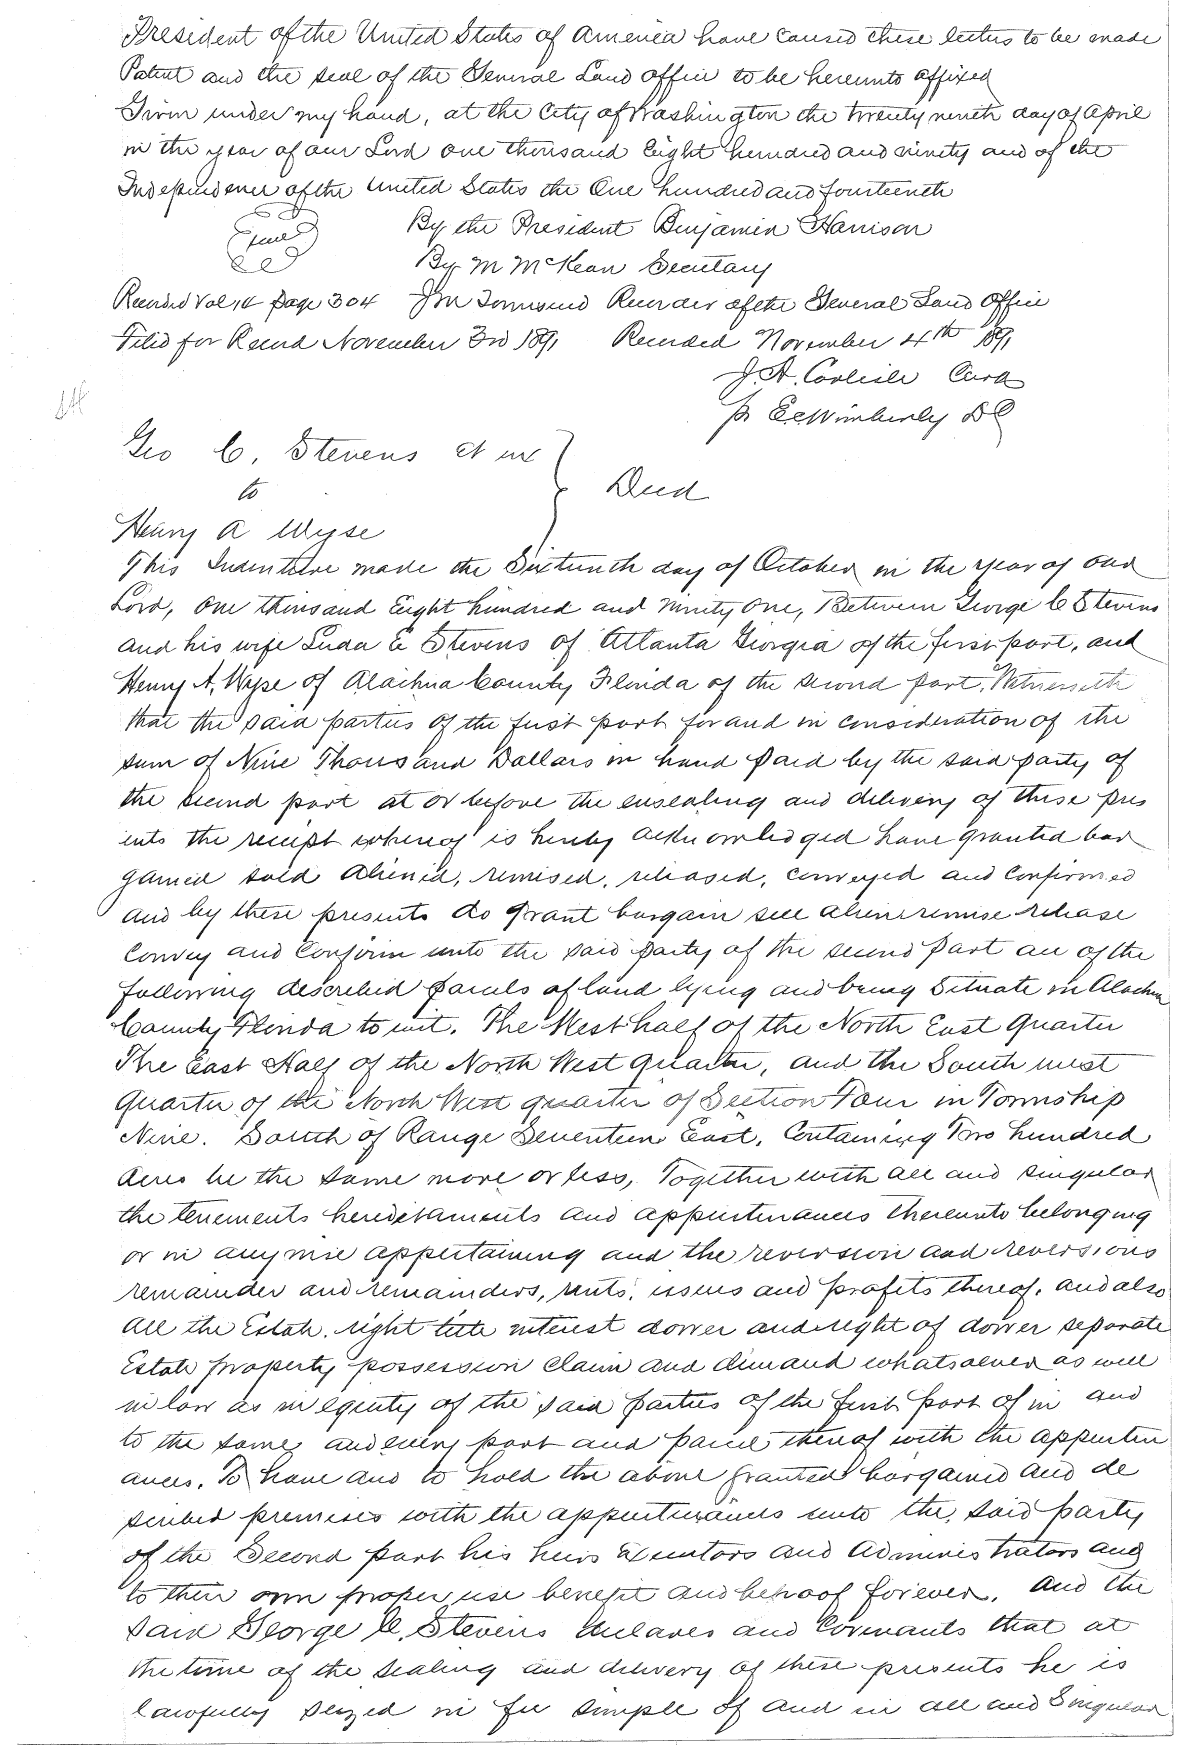 President of the United States of America have caused these letters to be made
Patent and the seal of the General Land office to be hereunto affixed
Given under my hand, at the City of Washington the twenty ninth day of April
in the year of our Lord one thousand Eight hundred and ninety and of the
Independence of the United States the One hundred and fourteenth
Seal
By the President Benjamin Harrison
By M McKean Secretary
Recorded Vol 14 page 304 J M Townsend Recorder of the General Land Office
Filed for Record November 3rd 1891 Recorded November 4th 1891
J. A. Carlisle Clerk
pr E. C. Wimberly D C
Geo C, Stevens et ux
to } Deed
Henry A Wyse
This Indenture made the Sixteenth day of October in the year of our
Lord, one thousand Eight hundred and ninety one, Between George C Stevens
and his wife Luda E Stevens of Atlanta Georgia of the first part, and
Henry A. Wyse of Alachua County Florida of the second part, Witnesseth
that the said parties of the first part for and in consideration of the
sum of Nine Thousand Dollars in hand paid by the said party of
the second part at or before the ensealing and delivery of these pres
ents the receipt whereof is hereby acknowledged have granted bar
gained sold aliened, remised, released, conveyed and confirmed
and by these presents do grant bargain sell alien remise release
convey and confirm unto the said party of the second part all of the
following described parcels of land lying and being situate in Alachua
County Florida to wit. The West half of the North East quarter
The East Half of the North West quarter, and the South west
quarter of the North West quarter of Section Four in Township
Nine. South of Range Seventeen East, Containing Two hundred
acres be the same more or less, Together with all and singular
the tenements hereditaments and appurtenances thereunto belonging
or in anywise appertaining and the reversion and reversions
remainder and remainders, rents, issues and profits thereof, and also
all the Estate, right title interest dower and right of dower separate
Estate property possession claim and demand whatsoever as well
in law as in equity of the said parties of the first part of in and
to the same, and every part and parcel thereof with the appurten
ances. To have and to hold the above granted bargained and de
scribed premises with the appurtenances unto the, said party
of the Second part his heirs Executors and Administrators and
to their own proper use benefit and behoof forever. And the
said George C. Stevens declares and covenants that at
the time of the sealing and delivery of these presents he is
lawfully seized in fee simple of and in all and singular